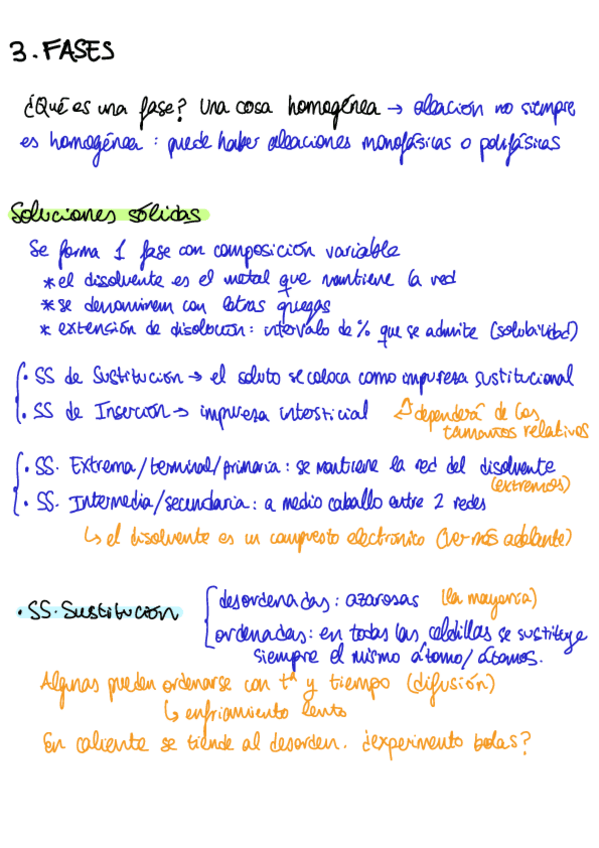 3. FASES
¿Qué es una fase? Una cosa homogénea → aleación no siempre
es homogénea: puede haber aleaciones monofásicas o polifásicas
Soluciones sólidas
Se forma 1 fase con composición variable
* el disolvente es el metal que mantiene la red
* se denominan con letras griegas
* extensión de disolución: intervalo de % que se admite (solubilidad)
· SS de Sustitución → el soluto se coloca como impureza sustitucional
· SS de Inserción → impureza intersticial ⇐ dependerá de los
tamaños relativos
· SS. Extrema/terminal/primaria: se mantiene la red del disolvente
(extremos)
· SS. Intermedia/secundaria: a medio caballo entre 2 redes
↳ el disolvente es un compuesto electrónico (ver más adelante)
· SS. Sustitución
desordenadas: azarosas (la mayoría)
ordenadas: en todas las celdillas se sustituye
siempre el mismo átomo/átomos.
Algunas pueden ordenarse con tª y tiempo (difusión)
↳ enfriamiento lento
En caliente se tiende al desorden. ¿experimento bolas?